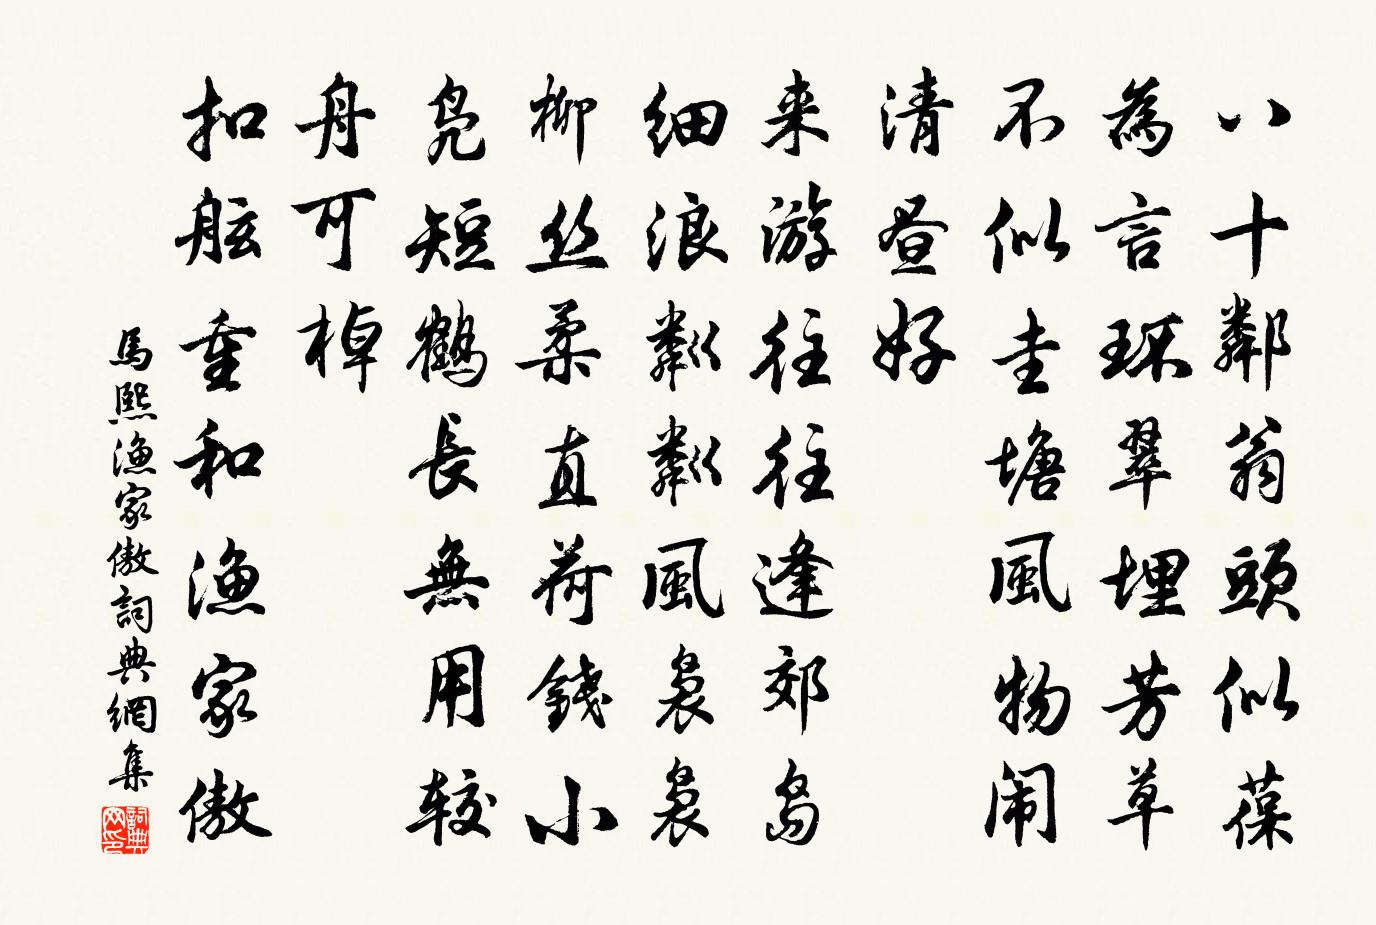 八十鄰翁頭似葆
為言环翠埋芳草
不似圭塘風物闹
清昼好
来游往往逢郊岛
细浪粼粼風袅袅
柳丝柔直荷錢小
凫短鶴長無用较
舟可棹
扣舷重和漁家傲
馬熙漁家傲詞典網集
詞典网印